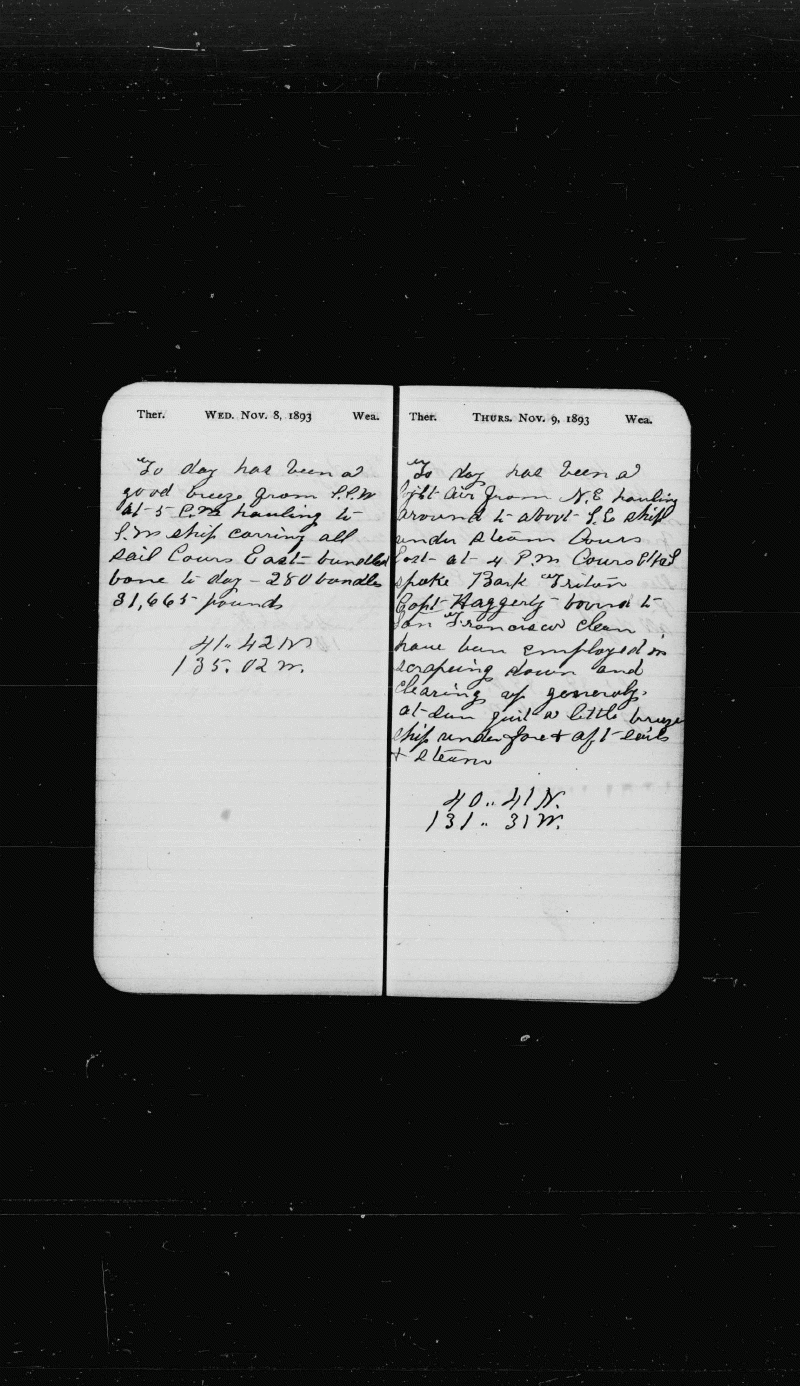 Ther. WED. NOV. 8, 1893 Wea.
To day has been a
good breeze from S.S.W
at 5 P.M hauling to
S.W ship carring all
sail Cours East bundled
bone to day - 280 bundles
31,665 pounds
41.. 42 N
135. 02 W.
Ther. THURS. NOV. 9, 1893 Wea.
To day has been a
light air from N.E hauling
around to about S.E ship
under steam Cours
East at 4 P.M Cours
spoke Bark Triton
Capt Haggerty bound to
San Francisco clean
have ben employed in
scraping down and
clearing up generaly
at sun a little breeze
ship under fore & aft sails
& steam
40.. 41 N.
131.. 31 W.